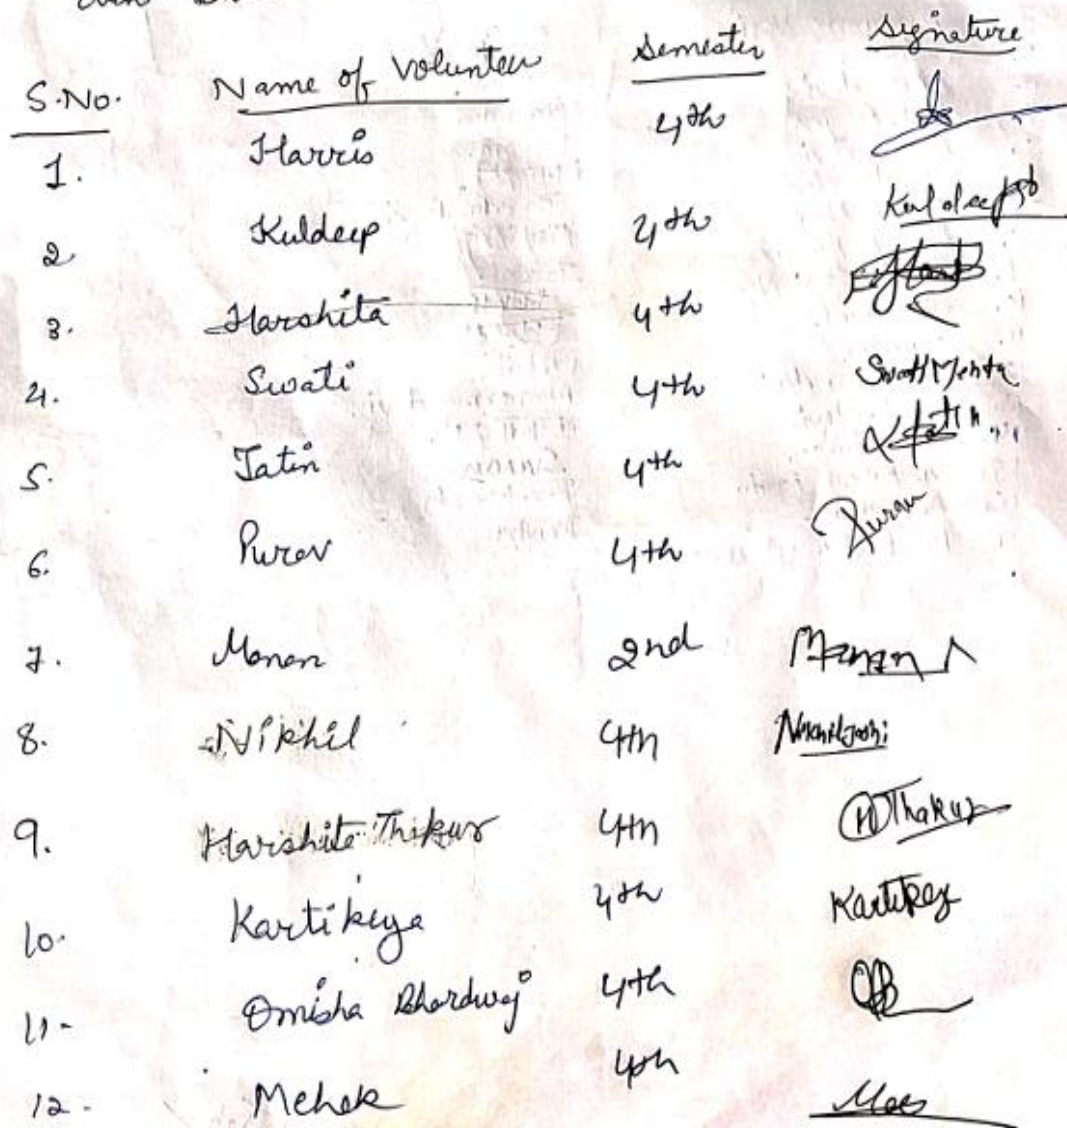 S.No. Name of Volunteer Semester Signature
1. Harris 4th
2 Kuldeep 4th Kuldeep
3. Harshita 4th
4. Swati 4th Swati Mehta
5. Jatin 4th Jatin
6. Purav 4th Purav
7. Manan 2nd Manan
8. Nikhil 4th Nikhil Joshi
9. Harshita Thakur 4th H Thakur
10. Kartikeya 4th Kartikey
11- Omisha Bhardwaj 4th
12. Mehak 4th